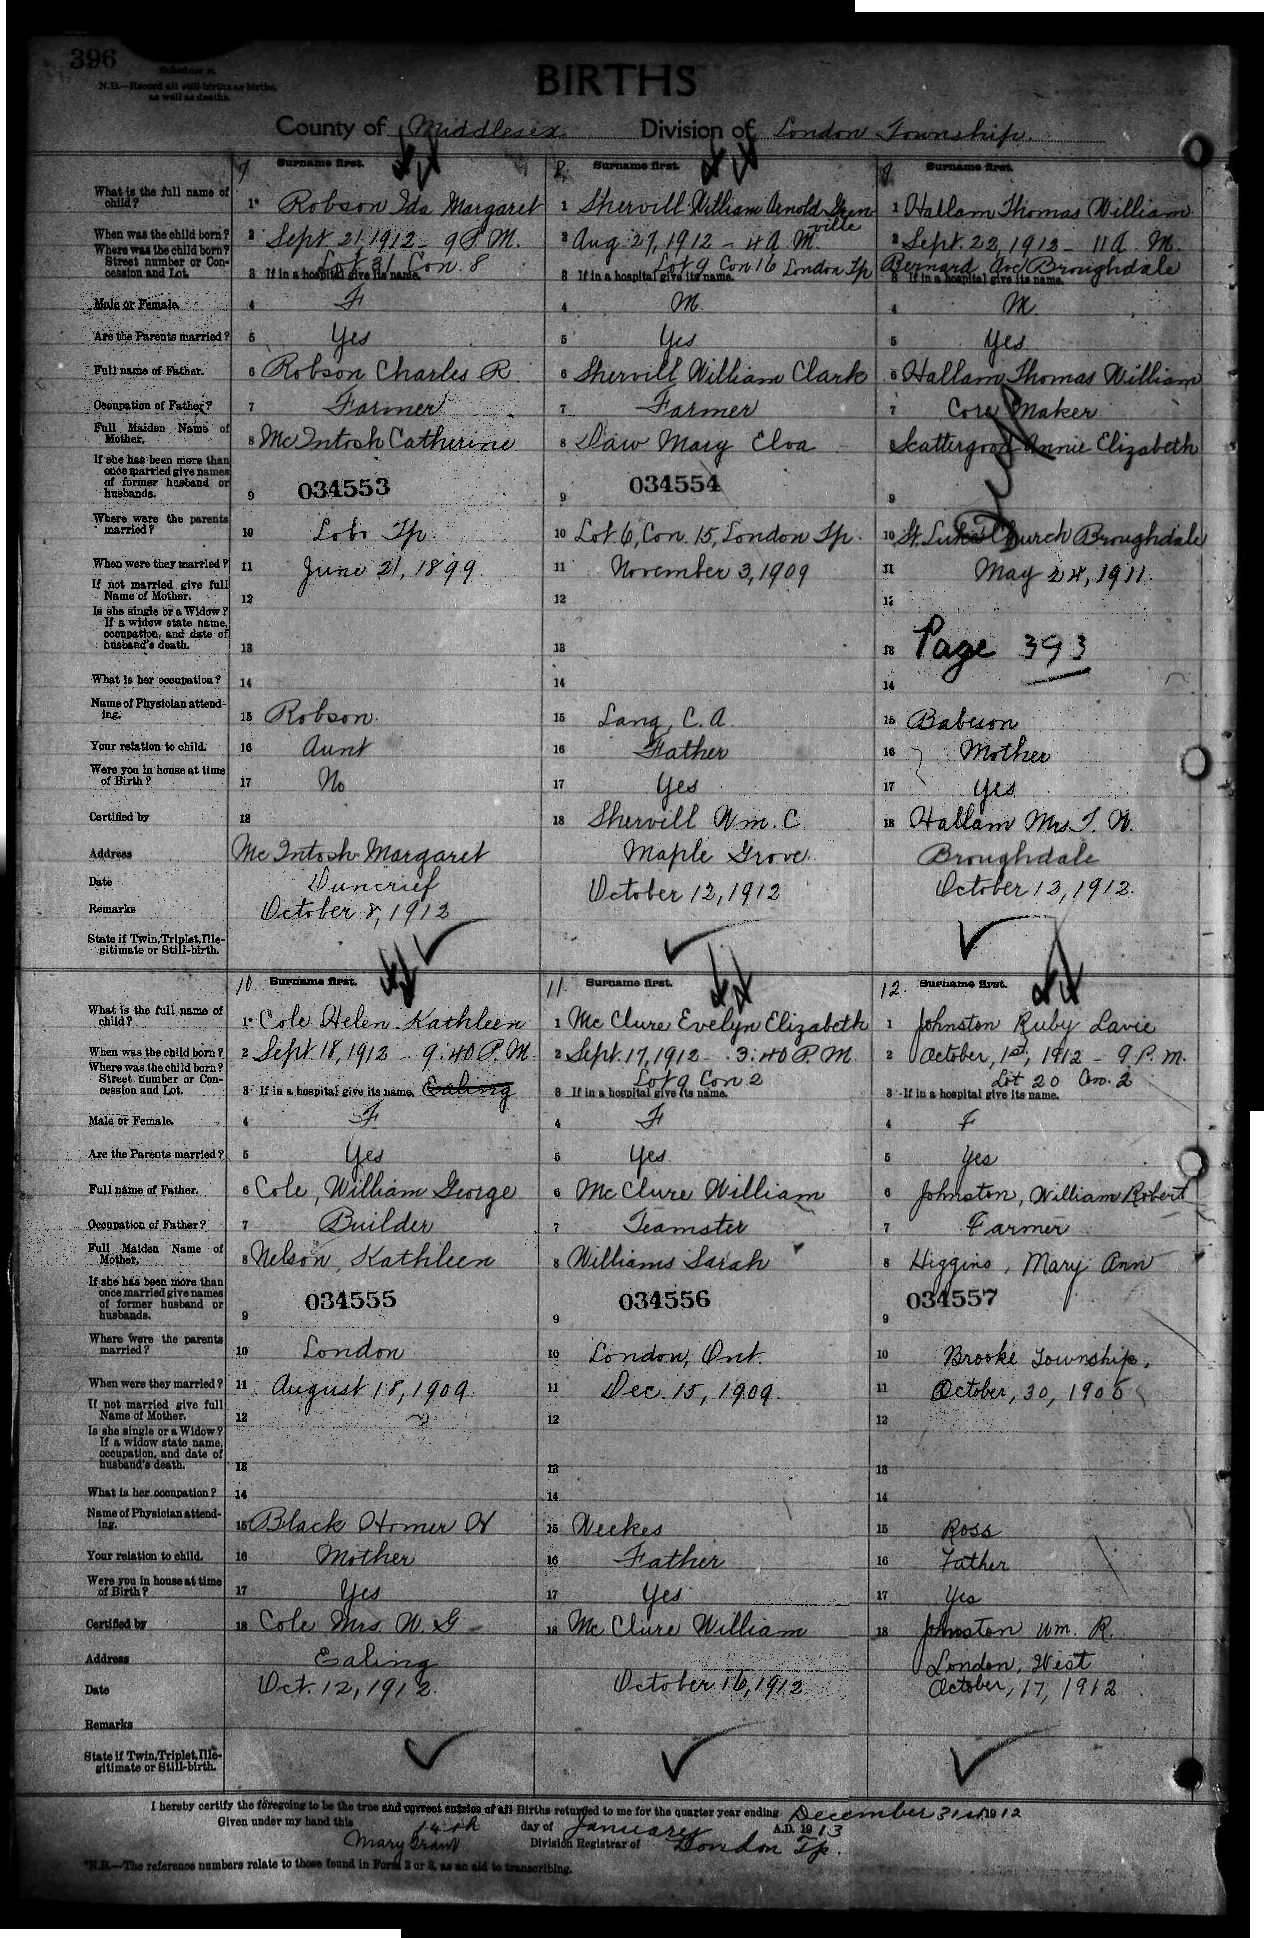 396
Schedule A.
N.B.—Record all still-births as births,
as well as deaths.
BIRTHS
County of Middlesex Division of London Township.
7 Surname first. 8 Surname first. 9 Surname first.
What is the full name of child? 1* Robson Ida Margaret 1 Shervill William Arnold Grenville 1 Hallam Thomas William
When was the child born? 2 Sept 21 1912 - 9 P.M. 2 Aug. 27, 1912 - 4 A.M. 2 Sept. 22, 1912 - 11 A.M.
Where was the child born? Street number or Concession and Lot. 3 If in a hospital give its name. Lot 31 Con. 8 3 If in a hospital give its name. Lot 9 Con 16 London Tp 3 If in a hospital give its name. Bernard Ave Broughdale
Male or Female. 4 F 4 M. 4 M.
Are the Parents married? 5 Yes 5 Yes 5 Yes
Full name of Father. 6 Robson Charles R 6 Shervill William Clark 6 Hallam Thomas William
Occupation of Father? 7 Farmer 7 Farmer 7 Core Maker
Full Maiden Name of Mother. 8 McIntosh Catherine 8 Daw Mary Elva 8 Scattergood Annie Elizabeth
If she has been more than once married give names of former husband or husbands. 9 034553 9 034554 9
Where were the parents married? 10 Lobo Tp. 10 Lot 6, Con. 15, London Tp. 10 St. Luke's Church Broughdale
When were they married? 11 June 21, 1899 11 November 3, 1909 11 May 24, 1911.
If not married give full Name of Mother. 12 12 12
Is she single or a Widow? If a widow state name, occupation, and date of husband's death. 13 13 13 Page 393
What is her occupation? 14 14 14
Name of Physician attending. 15 Robson. 15 Lang, C. A. 15
Your relation to child. 16 Aunt 16 Father 16 Mother
Were you in house at time of Birth? 17 No 17 Yes 17 Yes
Certified by 18 18 Shervill Wm. C. 18 Hallam Mrs T. W.
Address McIntosh Margaret Maple Grove. Broughdale
Date Duncrief October 12, 1912 October 12, 1912.
Remarks October 8, 1912
State if Twin, Triplet, Illegitimate or Still-birth.
10. Surname first. 11. Surname first. 12. Surname first.
What is the full name of child? 1* Cole Helen Kathleen 1 McClure Evelyn Elizabeth 1 Johnston Ruby Lavie
When was the child born? 2 Sept. 18, 1912 - 9:40 P.M. 2 Sept. 17, 1912 - 3:40 P.M. 2 October, 1st, 1912 - 9 P.m.
Where was the child born? Street number or Concession and Lot. 3 If in a hospital give its name. Ealing 3 If in a hospital give its name. Lot 9 Con 2 3 If in a hospital give its name. Lot 20 Con. 2
Male or Female. 4 F 4 F 4 F
Are the Parents married? 5 Yes 5 Yes 5 Yes
Full name of Father. 6 Cole, William George 6 McClure William 6 Johnston, William Robert
Occupation of Father? 7 Builder 7 Teamster 7 Farmer
Full Maiden Name of Mother. 8 Nelson, Kathleen 8 Williams Sarah 8 Higgins, Mary Ann
If she has been more than once married give names of former husband or husbands. 9 034555 9 034556 9 034557
Where were the parents married? 10 London 10 London, Ont. 10 Brooke Township.
When were they married? 11 August 18, 1909. 11 Dec. 15, 1909. 11 October, 30, 1905
If not married give full Name of Mother. 12 12 12
Is she single or a Widow? If a widow state name, occupation, and date of husband's death. 13 13 13
What is her occupation? 14 14 14
Name of Physician attending. 15 Black Homer 15 Weekes 15 Ross
Your relation to child. 16 Mother 16 Father 16 Father
Were you in house at time of Birth? 17 Yes 17 Yes 17 Yes
Certified by 18 Cole Mrs. W. G 18 McClure William 18 Johnston Wm. R.
Address Ealing London, West
Date Oct. 12, 1912. October 16, 1912 October, 17, 1912
Remarks
State if Twin, Triplet, Illegitimate or Still-birth.
I hereby certify the foregoing to be the true and correct entries of all Births returned to me for the quarter year ending December 31st 1912
Given under my hand this 14th day of January A.D. 1913
Mary Grant Division Registrar of London Tp.
*N.B.—The reference numbers relate to those found in Form 2 or 3, as an aid to transcribing.